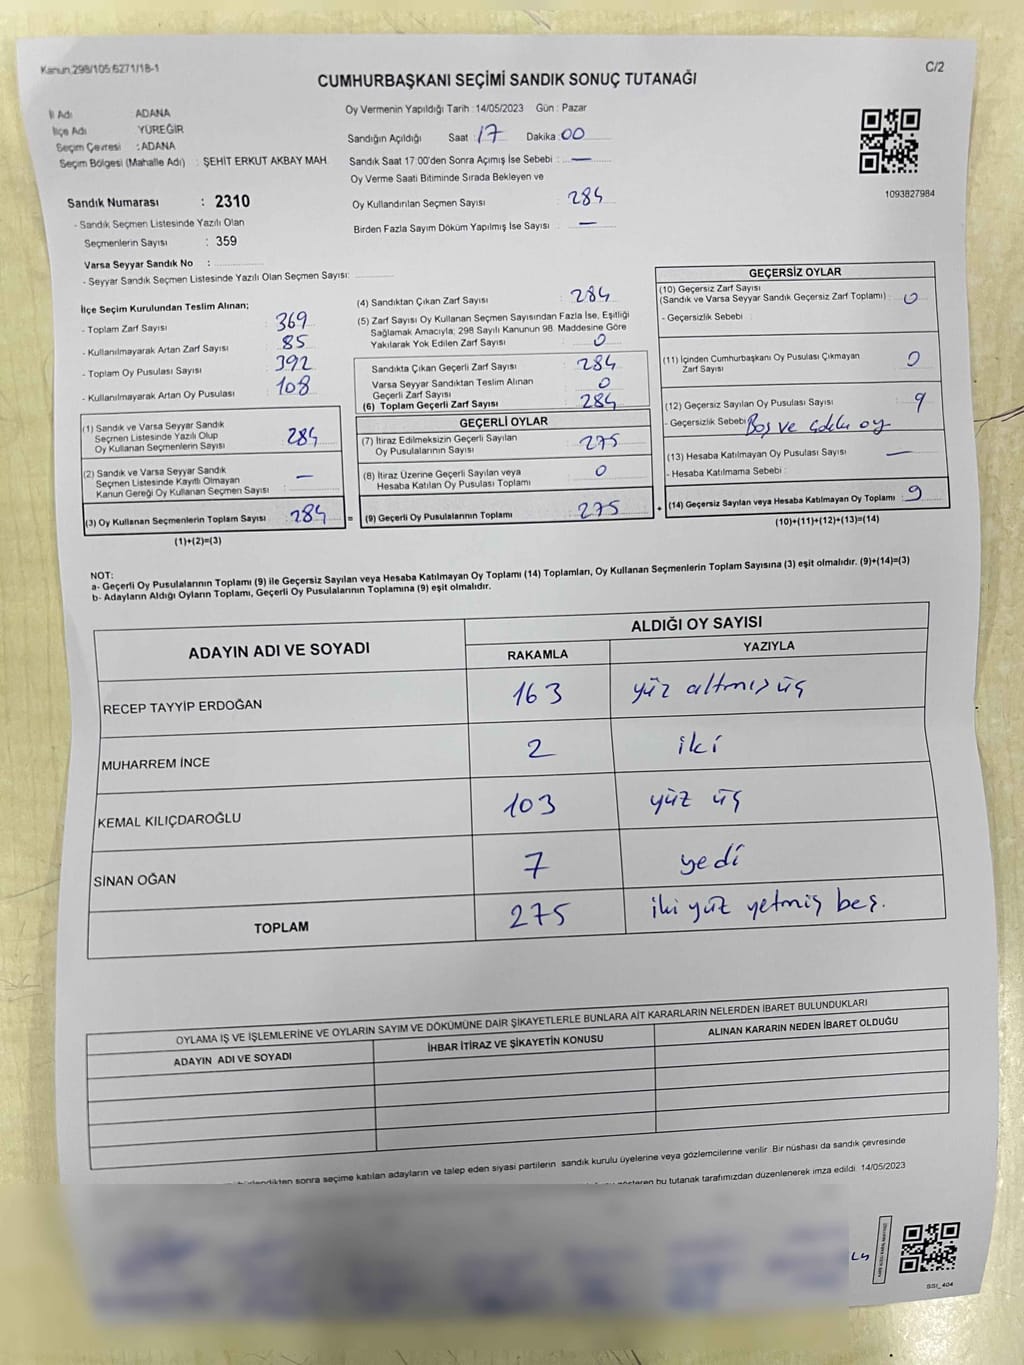 Kanun:298/105:6271/18-1
C/2
CUMHURBAŞKANI SEÇİMİ SANDIK SONUÇ TUTANAĞI
İl Adı : ADANA
İlçe Adı : YÜREĞİR
Seçim Çevresi : ADANA
Seçim Bölgesi (Mahalle Adı) : ŞEHİT ERKUT AKBAY MAH
Sandık Numarası : 2310
- Sandık Seçmen Listesinde Yazılı Olan
Seçmenlerin Sayısı : 359
Varsa Seyyar Sandık No :
- Seyyar Sandık Seçmen Listesinde Yazılı Olan Seçmen Sayısı:
Oy Vermenin Yapıldığı Tarih : 14/05/2023 Gün : Pazar
Sandığın Açıldığı Saat : 17 Dakika : 00
Sandık Saat 17:00'den Sonra Açımış İse Sebebi : —
Oy Verme Saati Bitiminde Sırada Bekleyen ve
Oy Kullandırılan Seçmen Sayısı : 284
Birden Fazla Sayım Döküm Yapılmış İse Sayısı : —
1093827984
İlçe Seçim Kurulundan Teslim Alınan;
- Toplam Zarf Sayısı 369
- Kullanılmayarak Artan Zarf Sayısı 85
- Toplam Oy Pusulası Sayısı 392
- Kullanılmayarak Artan Oy Pusulası 108
(1) Sandık ve Varsa Seyyar Sandık
Seçmen Listesinde Yazılı Olup
Oy Kullanan Seçmenlerin Sayısı 284
(2) Sandık ve Varsa Seyyar Sandık
Seçmen Listesinde Kayıtlı Olmayan
Kanun Gereği Oy Kullanan Seçmen Sayısı —
(3) Oy Kullanan Seçmenlerin Toplam Sayısı : 284 =
(1)+(2)=(3)
(4) Sandıktan Çıkan Zarf Sayısı 284
(5) Zarf Sayısı Oy Kullanan Seçmen Sayısından Fazla İse, Eşitliği
Sağlamak Amacıyla; 298 Sayılı Kanunun 98. Maddesine Göre
Yakılarak Yok Edilen Zarf Sayısı 0
Sandıkta Çıkan Geçerli Zarf Sayısı 284
Varsa Seyyar Sandıktan Teslim Alınan
Geçerli Zarf Sayısı 0
(6) Toplam Geçerli Zarf Sayısı 284
GEÇERLİ OYLAR
(7) İtiraz Edilmeksizin Geçerli Sayılan
Oy Pusulalarının Sayısı 275
(8) İtiraz Üzerine Geçerli Sayılan veya
Hesaba Katılan Oy Pusulası Toplamı 0
(9) Geçerli Oy Pusulalarının Toplamı 275 +
GEÇERSİZ OYLAR
(10) Geçersiz Zarf Sayısı
(Sandık ve Varsa Seyyar Sandık Geçersiz Zarf Toplamı) : 0
- Geçersizlik Sebebi :
(11) İçinden Cumhurbaşkanı Oy Pusulası Çıkmayan
Zarf Sayısı 0
(12) Geçersiz Sayılan Oy Pusulası Sayısı 9
- Geçersizlik Sebebi Boş ve oy
(13) Hesaba Katılmayan Oy Pusulası Sayısı —
- Hesaba Katılmama Sebebi :
(14) Geçersiz Sayılan veya Hesaba Katılmayan Oy Toplamı : 9
(10)+(11)+(12)+(13)=(14)
NOT:
a- Geçerli Oy Pusulalarının Toplamı (9) ile Geçersiz Sayılan veya Hesaba Katılmayan Oy Toplamı (14) Toplamları, Oy Kullanan Seçmenlerin Toplam Sayısına (3) eşit olmalıdır. (9)+(14)=(3)
b- Adayların Aldığı Oyların Toplamı, Geçerli Oy Pusulalarının Toplamına (9) eşit olmalıdır.
ADAYIN ADI VE SOYADI ALDIĞI OY SAYISI
RAKAMLA YAZIYLA
RECEP TAYYİP ERDOĞAN 163 yüz altmış üç
MUHARREM İNCE 2 iki
KEMAL KILIÇDAROĞLU 103 yüz üç
SİNAN OĞAN 7 yedi
TOPLAM 275 iki yüz yetmiş beş.
OYLAMA İŞ VE İŞLEMLERİNE VE OYLARIN SAYIM VE DÖKÜMÜNE DAİR ŞİKAYETLERLE BUNLARA AİT KARARLARIN NELERDEN İBARET BULUNDUKLARI
ADAYIN ADI VE SOYADI İHBAR İTİRAZ VE ŞİKAYETİN KONUSU ALINAN KARARIN NEDEN İBARET OLDUĞU
sonra seçime katılan adayların ve talep eden siyasi partilerin sandık kurulu üyelerine veya gözlemcilerine verilir. Bir nüshası da sandık çevresinde
bu tutanak tarafımızdan düzenlenerek imza edildi. 14/05/2023
SSİ_404